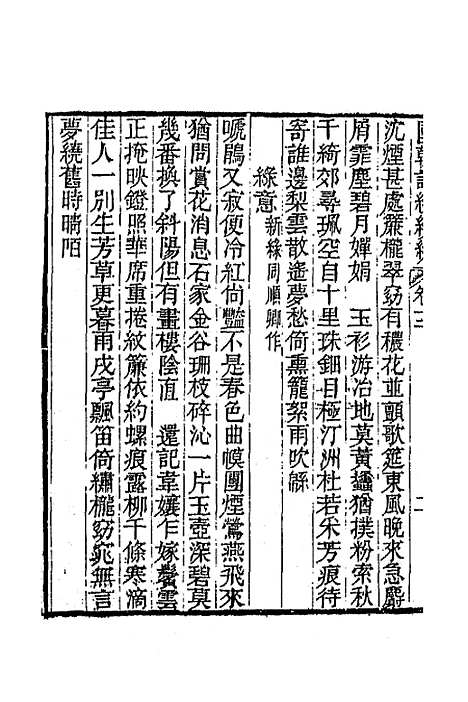 國朝詞綜續編 卷十三 二
沈煙甚處簾櫳翠窈有穠花並頭歌筵東風晚來急麝
屑霏塵碧月嬋娟　玉衫游冶地莫黃蠟猶撲粉索秋
千綺郊尋珮空自十里珠鈿目極汀洲杜若采芳痕待
寄誰邊梨雲散遙夢愁倚熏籠絮雨吹緜
綠意 新綠同順卿作
嗁鵑又寂便冷紅尙豔不是春色曲幙團煙鶯燕飛來
猶問賞花消息石家金谷珊枝碎沁一片玉壺深碧莫
幾番換了斜陽但有畫樓陰直　還記韋孃乍嫁鬢雲
正掩映鐙照華席重捲紋簾依約螺痕露柳千條寒滴
佳人一別生芳草更暮雨戍亭飄笛倚繡櫳窈窕無言
夢繞舊時晴陌